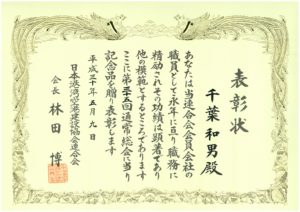 表彰状
千葉和男殿
あなたは当連合会会員会社の
職員として永年に亘り職務に
精励されその功績は顕著であり
他の模範とするところであります
ここに第三十五回通常総会に当り
記念品を贈り表彰します
平成三十年五月九日
日本港湾空港建設協会連合会
会長 林田博